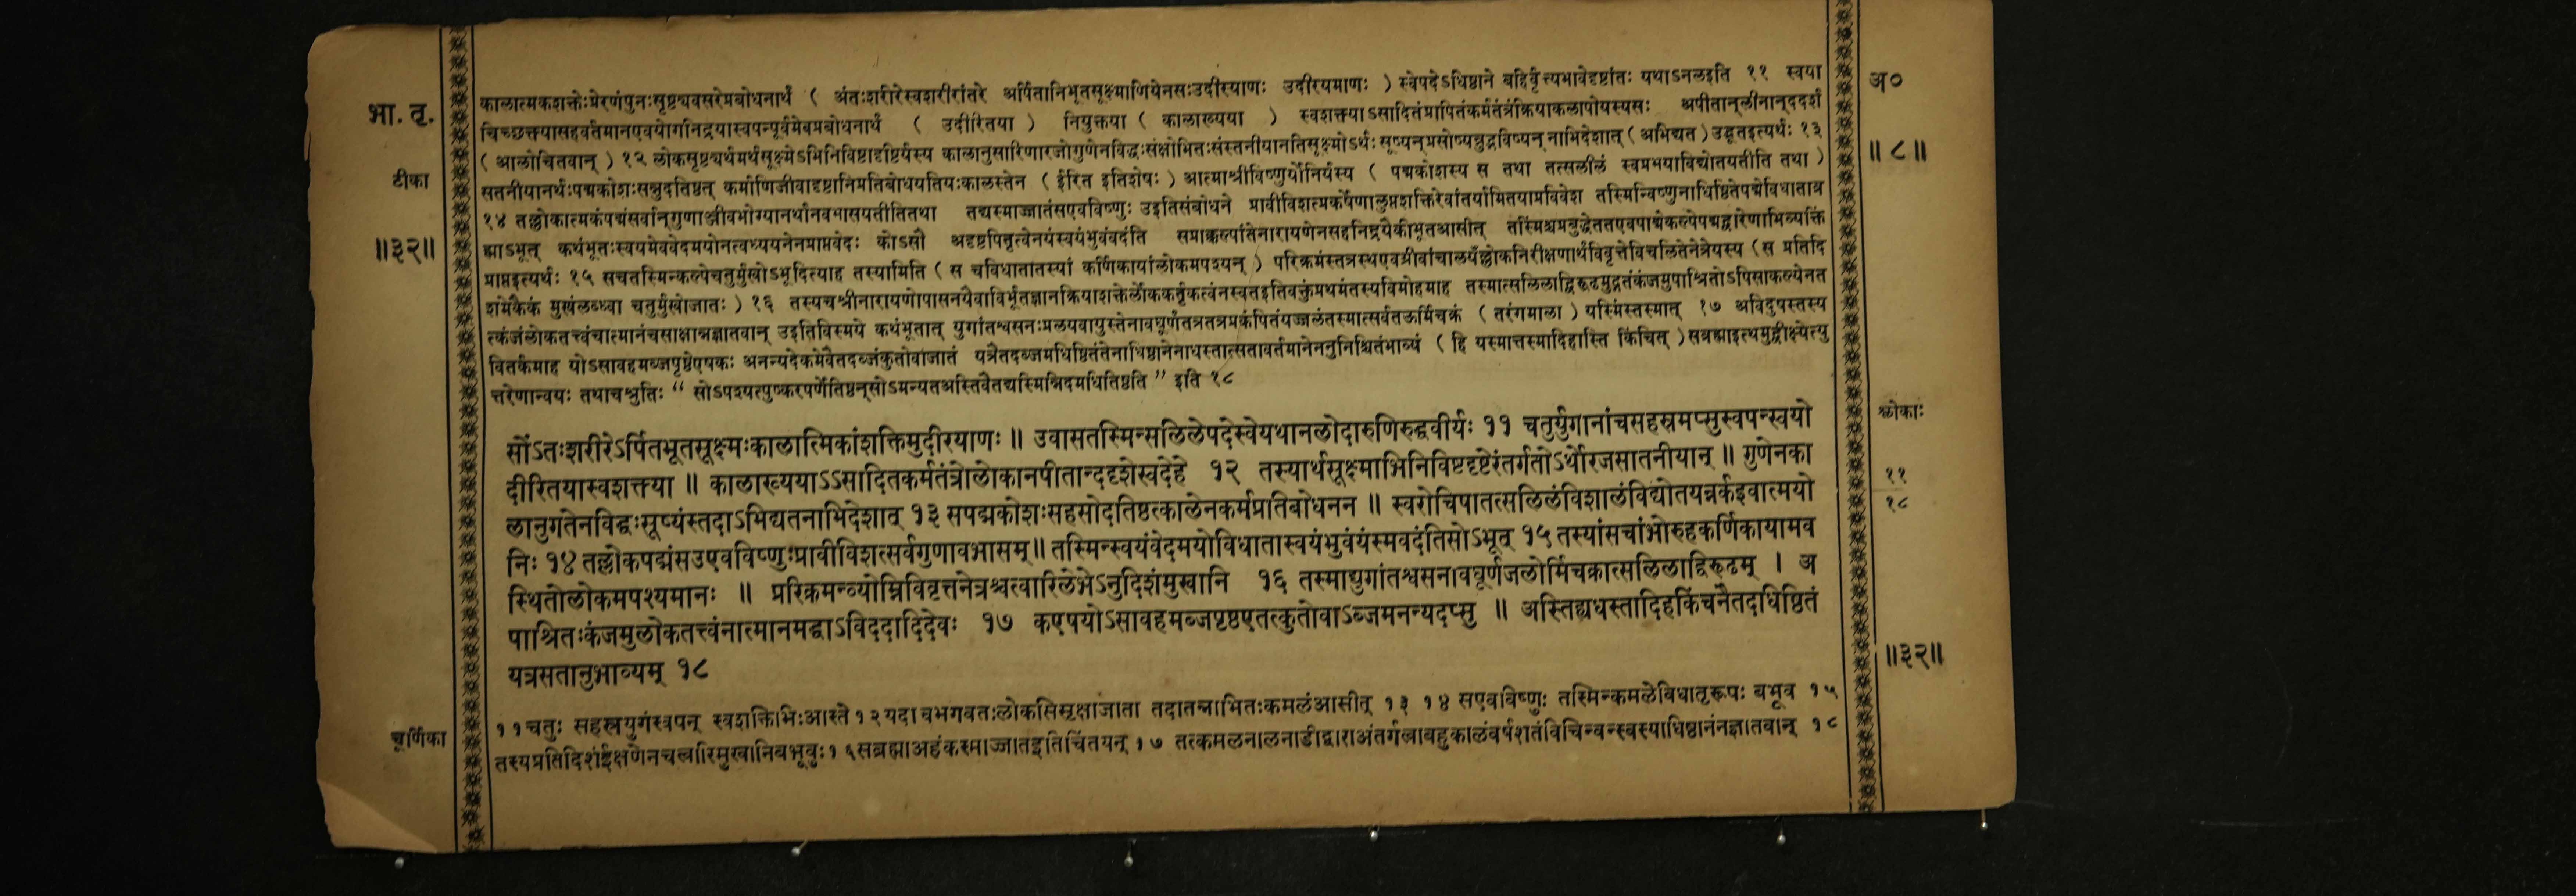 भा. तृ.
टीका
॥३२॥
चूर्णिका
अ०
॥ ८ ॥
श्लोकाः
११
१८
॥३२॥
कालात्मकशक्तेःप्रेरणंपुनःसृष्ट्यवसरेप्रबोधनार्थं ( अंतःशरीरेस्वशरीरांतरे अर्पितानिभूतसूक्ष्माणियेनसःउदीरयाणः उदीरयमाणः ) स्वेपदेऽधिष्ठाने बहिर्वृत्त्यभावेदृष्टांतः यथाऽनलइति ११ स्वया
चिच्छक्त्यासहवर्तमानएवयोगनिद्रयास्वपन्पूर्वमेवप्रबोधनार्थं ( उदीरितया ) नियुक्तया ( कालाख्यया ) स्वशक्त्याऽसादितंप्रापितंकर्मतंत्रंक्रियाकलापोयस्यसः अपीतान्लीनान्ददर्श
( आलोचितवान् ) १२ लोकसृष्ट्यर्थमर्थसूक्ष्मेऽभिनिविष्टादृष्टिर्यस्य कालानुसारिणारजोगुणेनविद्धःसंक्षोभितःसंस्तनीयानतिसूक्ष्मोऽर्थः सूष्यन्प्रसोष्यन्नुद्भविष्यन् नाभिदेशात् ( अभिद्यत ) उद्भूतइत्यर्थः १३
सतनीयानर्थःपद्मकोशःसन्नुदतिष्ठत् कर्माणिजीवादृष्टानिप्रतिबोधयतियःकालस्तेन ( ईरित इतिशेषः ) आत्माश्रीविष्णुर्योनिर्यस्य ( पद्मकोशस्य स तथा तत्सलीलं स्वप्रभयाविद्योतयतीति तथा )
१४ तल्लोकात्मकंपद्मंसर्वान्गुणाञ्जीवभोग्यानर्थानवभासयतीतितथा तद्यस्माज्जातंसएवविष्णुः उइतिसंबोधने प्रावीविशत्प्रकर्षेणालुप्तशक्तिरेवांतर्यामितयाप्रविवेश तस्मिन्विष्णुनाधिष्ठितेपद्मेविधाताब्र
ह्माऽभूत् कथंभूतःस्वयमेववेदमयोनत्वध्ययनेनप्राप्तवेदः कोऽसौ अदृष्टपितृत्वेनयंस्वयंभुवंवदंति सप्राक्कल्पांतेनारायणेनसहनिद्रयैकीभूतआसीत् तस्मिंश्चप्रबुद्धेततएवपाद्मेकल्पेपद्मद्वारेणाभिव्यक्तिं
प्राप्तइत्यर्थः १५ सचतस्मिन्कल्पेचतुर्मुखोऽभूदित्याह तस्यामिति ( स चविधातातस्यां कर्णिकायांलोकमपश्यन् ) परिक्रमंस्तत्रस्थएवग्रीवांचालयँल्लोकनिरीक्षणार्थंविवृत्तेविचलितेनेत्रेयस्य ( स प्रतिदि
शमेकैकं मुखंलब्ध्वा चतुर्मुखोजातः ) १६ तस्यचश्रीनारायणोपासनयैवाविर्भूतज्ञानक्रियाशक्तेर्लोककर्तृकत्वंनस्वतइतिवक्तुंप्रथमंतस्यविमोहमाह तस्मात्सलिलाद्विरूढमुद्गतंकंजमुपाश्रितोऽपिसाकल्येनत
त्कंजंलोकतत्त्वंचात्मानंचसाक्षान्नज्ञातवान् उइतिविस्मये कथंभूतात् युगांतश्वसनःप्रलयवायुस्तेनावघूर्णंतत्रतत्रप्रकंपितंयज्जलंतस्मात्सर्वतऊर्मिचक्रं ( तरंगमाला ) यस्मिंस्तस्मात् १७ अविदुषस्तस्य
वितर्कमाह योऽसावहमब्जपृष्ठेएषकः अनन्यदेकमेवैतदब्जंकुतोवाजातं यत्रैतदब्जमधिष्ठितंतेनाधिष्ठानेनाधस्तात्सतावर्तमानेननुनिश्चितंभाव्यं ( हि यस्मात्तस्मादिहास्ति किंचित् ) सब्रह्माइत्थमुद्वीक्ष्येत्यु
त्तरेणान्वयः तथाचश्रुतिः “ सोऽपश्यत्पुष्करपर्णेतिष्ठन्सोऽमन्यतअस्तिवैतद्यस्मिन्निदमधितिष्ठति ” इति १८
सोंऽतःशरीरेऽर्पितभूतसूक्ष्मःकालात्मिकांशक्तिमुदीरयाणः ॥ उवासतस्मिन्सलिलेपदेस्वेयथानलोदारुणिरुद्धवीर्यः ११ चतुर्युगानांचसहस्रमप्सुस्वपन्स्वयो
दीरितयास्वशक्त्या ॥ कालाख्ययाऽऽसादितकर्मतंत्रोलोकानपीतान्ददृशेस्वदेहे १२ तस्यार्थसूक्ष्माभिनिविष्टदृष्टेरंतर्गतोऽर्थोरजसातनीयान् ॥ गुणेनका
लानुगतेनविद्धःसूष्यंस्तदाऽभिद्यतनाभिदेशात् १३ सपद्मकोशःसहसोदतिष्ठत्कालेनकर्मप्रतिबोधनन ॥ स्वरोचिषातत्सलिलंविशालंविद्योतयन्नर्कइवात्मयो
निः १४ तल्लोकपद्मंसउएवविष्णुःप्रावीविशत्सर्वगुणावभासम् ॥ तस्मिन्स्वयंवेदमयोविधातास्वयंभुवंयंस्मवदंतिसोऽभूत् १५ तस्यांसचांभोरुहकर्णिकायामव
स्थितोलोकमपश्यमानः ॥ प्ररिक्रमन्व्योम्निविवृत्तनेत्रश्चत्वारिलेभेऽनुदिशंमुखानि १६ तस्माद्युगांतश्वसनावघूर्णजलोर्मिचक्रात्सलिलाद्विरूढम् । अ
पाश्रितःकंजमुलोकतत्त्वंनात्मानमद्धाऽविददादिदेवः १७ कएषयोऽसावहमब्जपृष्ठएतत्कुतोवाऽब्जमनन्यदप्सु ॥ अस्तिह्यधस्तादिहकिंचनैतदधिष्ठितं
यत्रसतानुभाव्यम् १८
११ चतुः सहस्रयुगंस्वपन् स्वशक्तिभिःआस्ते १२ यदा वभगवतःलोकसिसृक्षाजाता तदातन्नाभितःकमलंआसीत् १३ १४ सएवविष्णुः तस्मिन्कमलेविधातृरूपः बभूव १५
तस्यप्रतिदिशंईक्षणेनचत्वारिमुखानिबभूवुः१६सब्रह्माअहंकस्माज्जातइतिचिंतयन् १७ तत्कमलनालनाडीद्वाराअंतर्गत्वाबहुकालंवर्षशतंविचिन्वन्स्वस्याधिष्ठानंनज्ञातवान् १८